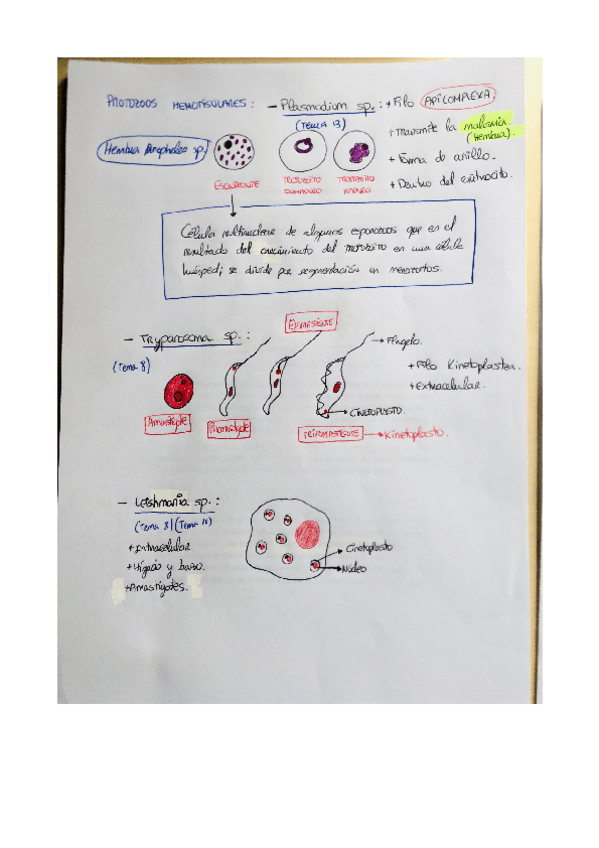 PROTOZOOS HEMOTISULARES: - Plasmodium sp.: + Filo APICOMPLEXA
(TEMA 13)
+ Transmite la malaria. (Hembra).
Hembra Anopheles sp.
+ Forma de anillo.
+ Dentro del eritrocito.
ESQUIZONTE
TROFOZOITO
TROFOZOITO MADURO
Célula multinuclear de algunos esporozoos que en el
resultado del crecimiento del TROFOZOITO en una célula
huésped; se divide por segmentación en merozoitos.
- Trypanosoma sp.:
(Tema 8)
Epimastigote
Flagelo.
+ Filo Kinetoplastea.
+ Extracelular.
Amastigote
Promastigote
CINETOPLASTO.
TRIPOMASTIGOTE → Kinetoplasto.
- Leishmania sp.:
(Tema 8) (Tema 10)
+ Intracelular
+ Hígado y bazo.
+ Amastigotes.
Cinetoplasto
Núcleo